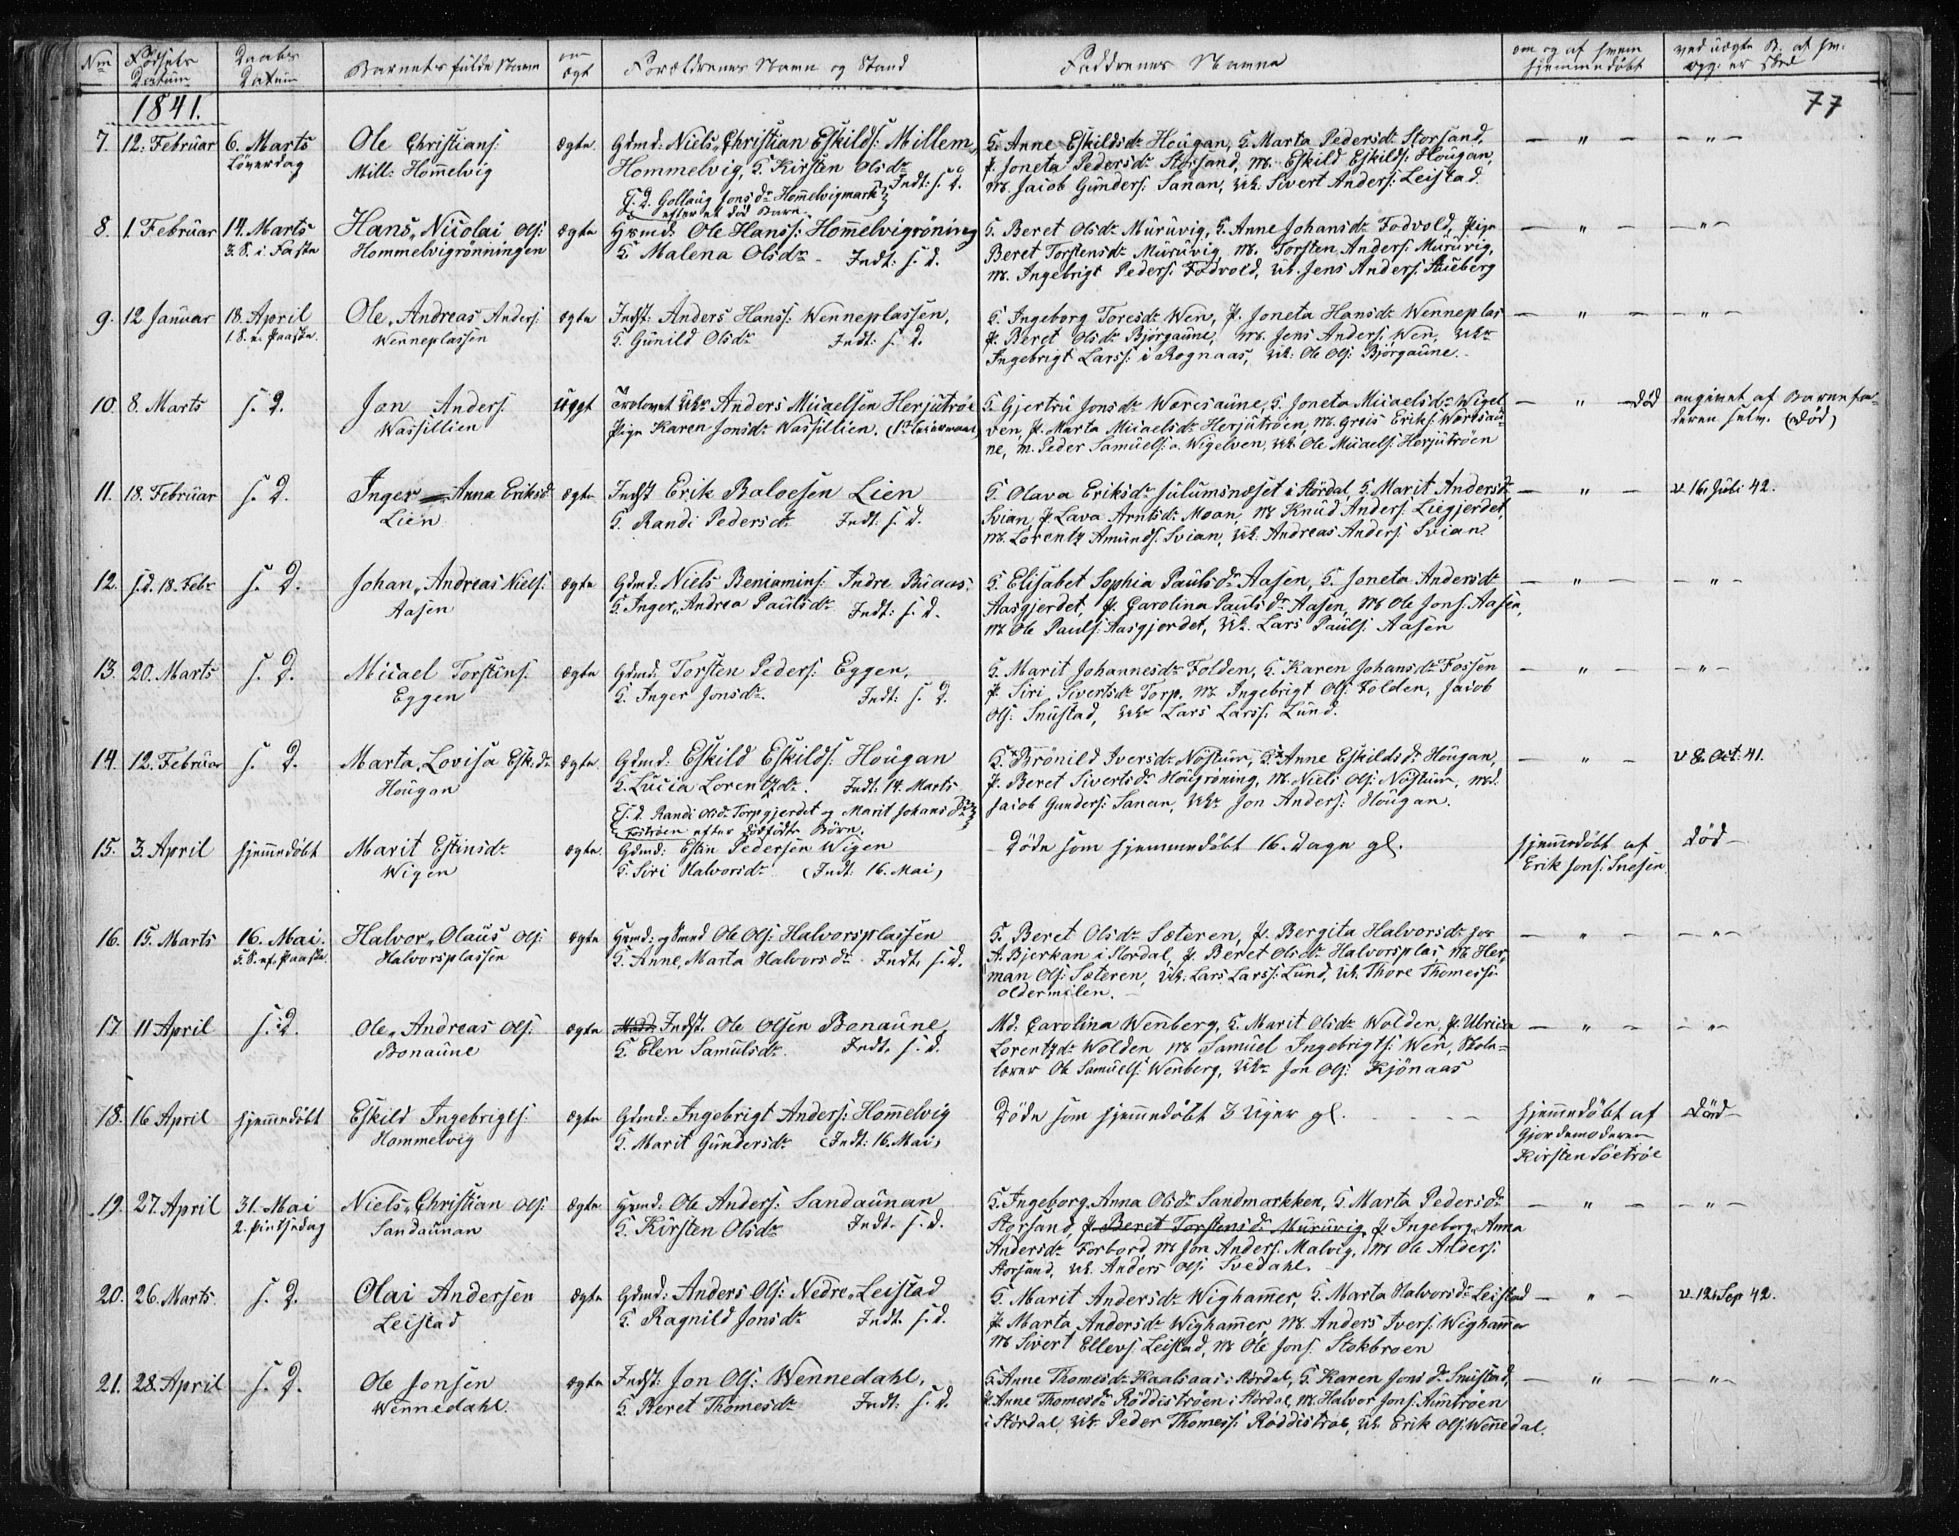 Nm Fødsels Datum Daabs Datum Barnets fulde Navn om ægt Forældrenes Navn og Stand Faddrenes Navne om og af hvem hjemmedøbt ved uægte B. af hv. opg: er skeed
1841. 77
7. 12. Februar 6. Marts Ole Christians: ægte. Gdmd: Niels, Christian Eskilds: Millem, G. Anne Eskildsdr Hougan, G. Marta Pedersdr Storsand, — " — — " —
Löverdag Mill: Hommelvig Hommelvig, G. Kirsten Olsdr P. Joneta Pedersdr Storsand, M. Eskild Eskilds: Hougan,
Indt: s. D. M. Jacob Gunders: Sanan, Uk. Sivert Anders: Leistad.
s. D. Gollaug Jonsdr Hommelvigmark
efter et død Barn.
8. 1. Februar 14. Marts Hans, Nicolai Ols: ægte Hgmd: Ole Hanss: Hommelvigröning G. Beret Olsdr Muruvig, G. Anne Johansdr Fodvold, Pige — " — — " —
3. S. i. Faste Hommelvigrönningen G. Malena Olsdr Indt: s. d. Beret Torstensdr Muruvig, M. Torsten Anders: Muruvig,
M. Ingebrigt Peders: Fodvold, Uk. Jens Anders: Stueberg
9. 12 Januar 18. April Ole, Andreas Anders: ægte Indst: Anders Hanss: Wenneplassen, G. Ingeborg Toresdr Wen, P. Joneta Hansdr Wenneplas — " — — " —
1. S. e. Paaske. Wenneplassen G. Gunild Olsdr Indt: s. D. P. Beret Olsdr Bjørgaune, M. Jens Anders: Wen, Ukr
Ingebrigt Larss: i Rognaas, Uk: Ole Ols: Bjørgaune.
10. 8. Marts s. D. Jon Anders: uægt Trolovet Ukr Anders Micaelsen Herjutröe G. Gjertru Jonsdr Woresaune, G. Joneta Micaelsdr Wigel — " — død angivet af Barnefa-
Wassillien Pige Karen Jonsdr Wassillien. (1st Leiermaal) ven, P. Marta Micaelsdr Herjutröen, M. Greis Eriks: Woresau- deren selv. (død)
ne, M. Peder Samuels: o. Wigelven, Uk. Ole Micaels: Herjutröen
11. 18. Februar s. D. Inger Anna Eriksd ægte Indst Erik Baloesen Lien G. Olava Eriksdr Julumsnæset i Stördal, G. Marit Andersdr — " — v. 16 Juli 42.
Lien G. Randi Pedersdr Indt: s. D. Svian, P. Lava Arntsdr Moan, M Knud Anders: Liegjerdet,
M. Lorentz Amunds: Svian, Uk. Andreas Anders: Svian.
12. s.d. 18. Febr s. D. Johan, Andreas Niels: ægte Gdmd. Niels Beniamins: Indre Buaas. G. Elisabet Sophia Paulsdr Aasen, G. Joneta Andersdr — " — — " —
Aasen G. Inger, Andrea Paulsdr Indt: s. D. Aasgjerdet, P. Carolina Paulsdr Aasen, M Ole Jons: Aasen,
M Ole Pauls: Aasgjerdet, Uk. Lars Pauls: Aasen
13. 20. Marts s. D. Micael Torstens: ægte Gdmd: Torsten Peders: Eggen, G. Marit Johannesdr Folden, G. Karen Johansdr Fossen — " — — " —
Eggen G. Inger Jonsdr. Indt: s. D. P. Siri Sivertsdr Torp. M Ingebrigt Ols: Folden, Jacob
Ols: Snustad, Ukr Lars Larss: Lund.
14. 12. Februar s. D. Marta, Lovisa Esk:dr ægte Gdmd: Eskild Eskilds: Hougan G. Brönild Iversdr Nöstum, G. Anne Eskildsdr Hougan, — " — v 8. Oct. 41.
Hougan G. Lucia Lorentzdr. Indt: 14. Marts P. Beret Sivertsdr Hougröning, M. Niels Ols: Nöstum, Md.
s. D. Randi Olsdr Torpgjerdet og Marit Johansdr Jacob Gunders: Sanan, Ukr Jon Anders: Hougan.
efter dødfødte Børn.
15. 3. April hjemmedøbt Marit Estinsdr ægte. Gdmd: Estin Pedersen Wigen Døde som hjemmedøbt 16. Dage gl. hjemmedøbt af død —
Wigen G. Siri Halvorsdr (Indt: 16. Mai) Erik Jons: Snesen
16. 15. Marts 16. Mai. Halvor, Olaus Ols: ægte Hgmd: og Smed Ole Ols: Halvorsplassen G. Beret Olsdr Sæteren, P. Bergita Halvorsdr — " — — " —
5. S. ef. Paaske. Halvorsplassen G. Anne, Marta Halvorsdr. Indt. s. d. A. Bjerkan i Stordal, P. Beret Olsdr Halvorsplas M. Her-
man Ols: Sæteren, Uk. Lars Larss: Lund, Uk. Thore Thomess:
oldermelen.
17 11 April s. D. Ole, Andreas Ols: ægte Indst. Ole Olsen Bonaune, Md. Carolina Wenberg, G. Marit Olsdr Wolden, P. Ulrica — " — — " —
Bonaune G. Elen Samulsdr. Indt. s. d. Lorentzdr Wolden M Samuel Ingebrigts: Wen, Skole-
lærer Ole Samuels: Wenberg, Ukr Jon Ols: Kjönaas
18. 16 April hjemmedøbt Eskild Ingebrigts: ægte Gdmd: Ingebrigt Anders: Hommelvig Døde som hjemmedøbt 3 Uger gl. hjemmedøbt af død —
Hommelvig G. Marit Gundersdr (Indt: 16. Mai) Gjordemoderen
Kirsten Söetröe
19. 27. April 31. Mai Niels, Christian Ols: ægte Hgmd: Ole Anders: Sandaunan G. Ingeborg, Anna Olsdr Sandmarkken, G. Marta Pedersdr — " — — " —
2. Pintsedag Sandaunan G. Kirsten Olsdr Indt. s. d. Storsand, P. Beret Torstensdr Muruvig, P. Ingeborg, Anna
Andersdr Forbord, M Jon Anders: Malvig, M Ole Anders:
Storsand, Uk. Anders Ols: Svedahl.
20. 26. Marts. s. D. Olai Andersen ægte Gdmd: Anders Ols: Nedre, Leistad G. Marit Andersdr Wighammer, G. Marta Halvorsdr Leistad — " — v. 12 Sep 42.
Leistad G. Ragnild Jonsdr Indt. s. d. P. Marta Andersdr Wighammer, M. Anders Ivers: Wighammer
M Sivert Ellevs: Leistad, M Ole Jons: Stokbroen
21. 28. April s. D. Ole Jonsen ægte Indst: Jon Ols: Wennedahl, G. Anne Thomesdr Kaalsaas i Stördal, G. Karen Jonsdr Snustad, — " — — " —
Wennedahl. G. Beret Thomesdr Indt: s. d. P. Anne Thomesdr Röddiströen i Stördal, M. Halvor Jons: Aunströen
i Stördal, Uk. Peder Thomess: Röddiströe, Uk. Erik Ols: Wennedal.